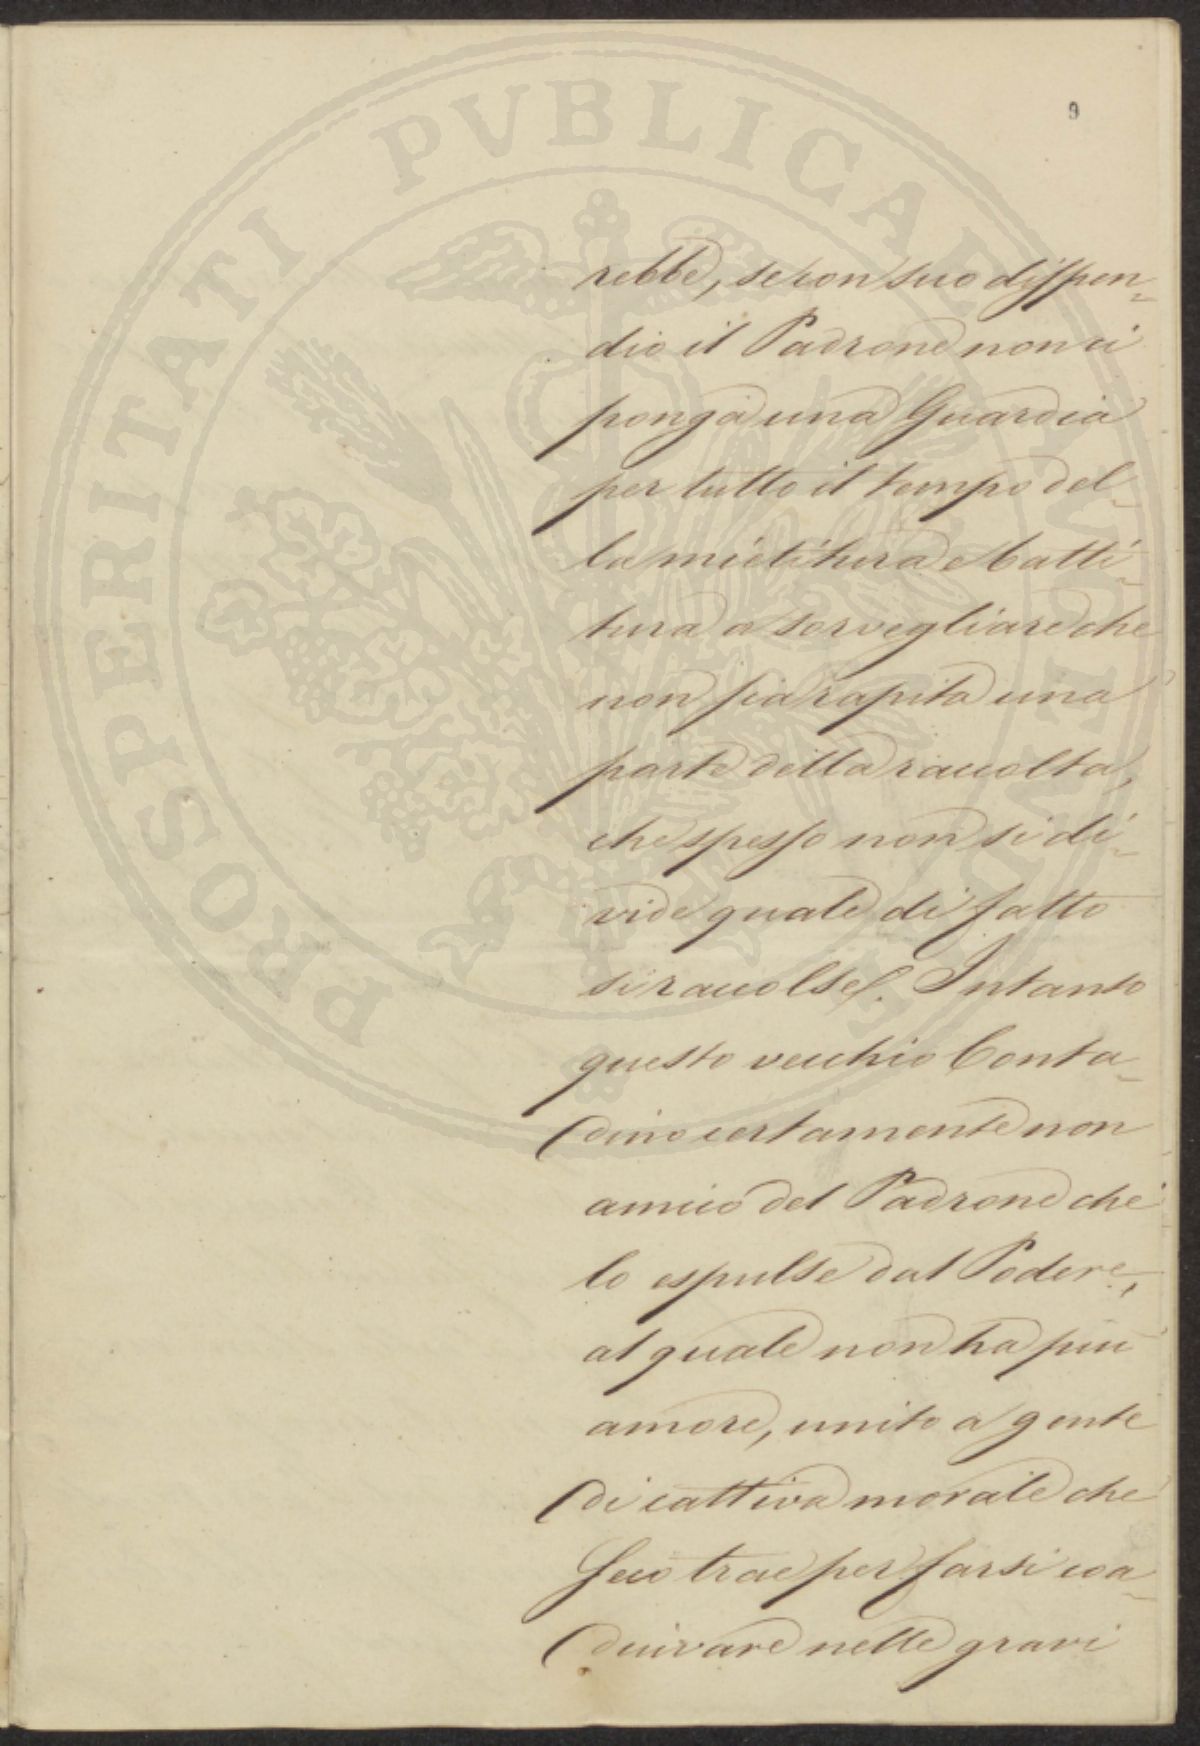 PROSPERITATI PVBLICAE AVGENDAE
9
rebbe, se con suo dispen-
dio il Padrone non ci
ponga una Guardia
per tutto il tempo del-
la mietitura e batti-
tura a sorvegliare che
non sia rapita una
parte della raccolta,
che spesso non si di-
vide quale di fatto
si raccolse. Intanto
questo vecchio Conta-
dino certamente non
amico del Padrone che
lo espulse dal Podere,
al quale non ha più
amore, unito a gente
di cattiva morale che
seco trae per farsi coa-
diuvare nelle gravi